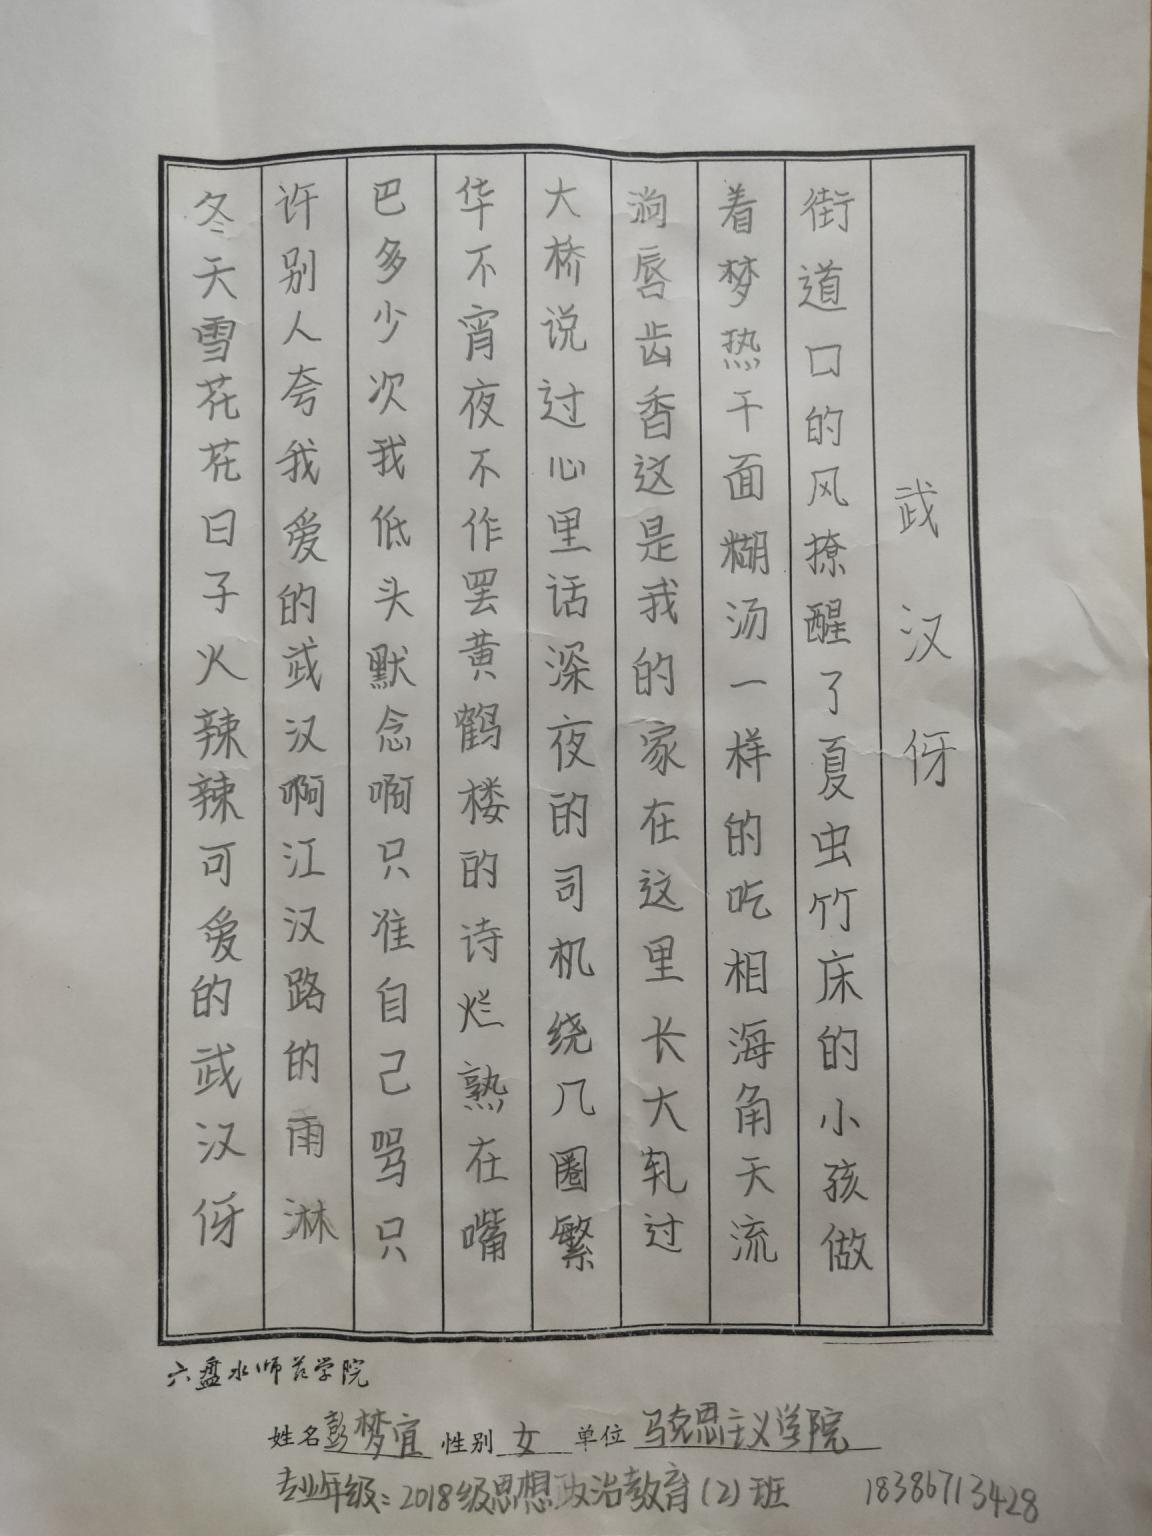 武汉伢
街道口的风撩醒了夏虫竹床的小孩做
着梦热干面糊汤一样的吃相海角天流
淌唇齿香这是我的家在这里长大轧过
大桥说过心里话深夜的司机绕几圈繁
华不宵夜不作罢黄鹤楼的诗烂熟在嘴
巴多少次我低头默念啊只准自己骂只
许别人夸我爱的武汉啊江汉路的雨淋
冬天雪花花日子火辣辣可爱的武汉伢
六盘水师范学院
姓名彭梦宜 性别女 单位马克思主义学院
专业年级:2018级思想政治教育(2)班 18386713428